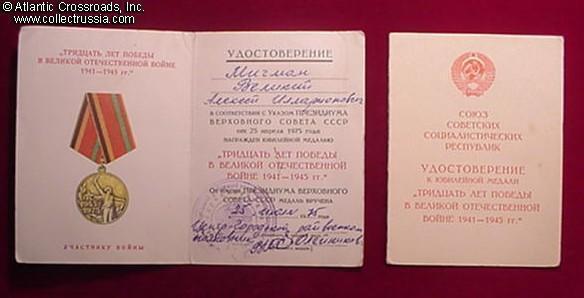 © Atlantic Crossroads, Inc.
www.collectrussia.com
"ТРИДЦАТЬ ЛЕТ ПОБЕДЫ
В ВЕЛИКОЙ ОТЕЧЕСТВЕННОЙ ВОЙНЕ
1941—1945 гг."
УЧАСТНИКУ ВОЙНЫ
УДОСТОВЕРЕНИЕ
Мичман
Великий
Алексей Илларионович
В СООТВЕТСТВИИ С УКАЗОМ ПРЕЗИДИУМА
ВЕРХОВНОГО СОВЕТА СССР
от 25 апреля 1975 года
НАГРАЖДЕН ЮБИЛЕЙНОЙ МЕДАЛЬЮ
"ТРИДЦАТЬ ЛЕТ ПОБЕДЫ
В ВЕЛИКОЙ ОТЕЧЕСТВЕННОЙ
ВОЙНЕ 1941—1945 гг."
От имени ПРЕЗИДИУМА ВЕРХОВНОГО
СОВЕТА СССР МЕДАЛЬ ВРУЧЕНА
25 75
райвоенком
полковник
СОЮЗ
СОВЕТСКИХ
СОЦИАЛИСТИЧЕСКИХ
РЕСПУБЛИК
УДОСТОВЕРЕНИЕ
К ЮБИЛЕЙНОЙ МЕДАЛИ
"ТРИДЦАТЬ ЛЕТ ПОБЕДЫ
В ВЕЛИКОЙ ОТЕЧЕСТВЕННОЙ
ВОЙНЕ 1941—1945 гг."